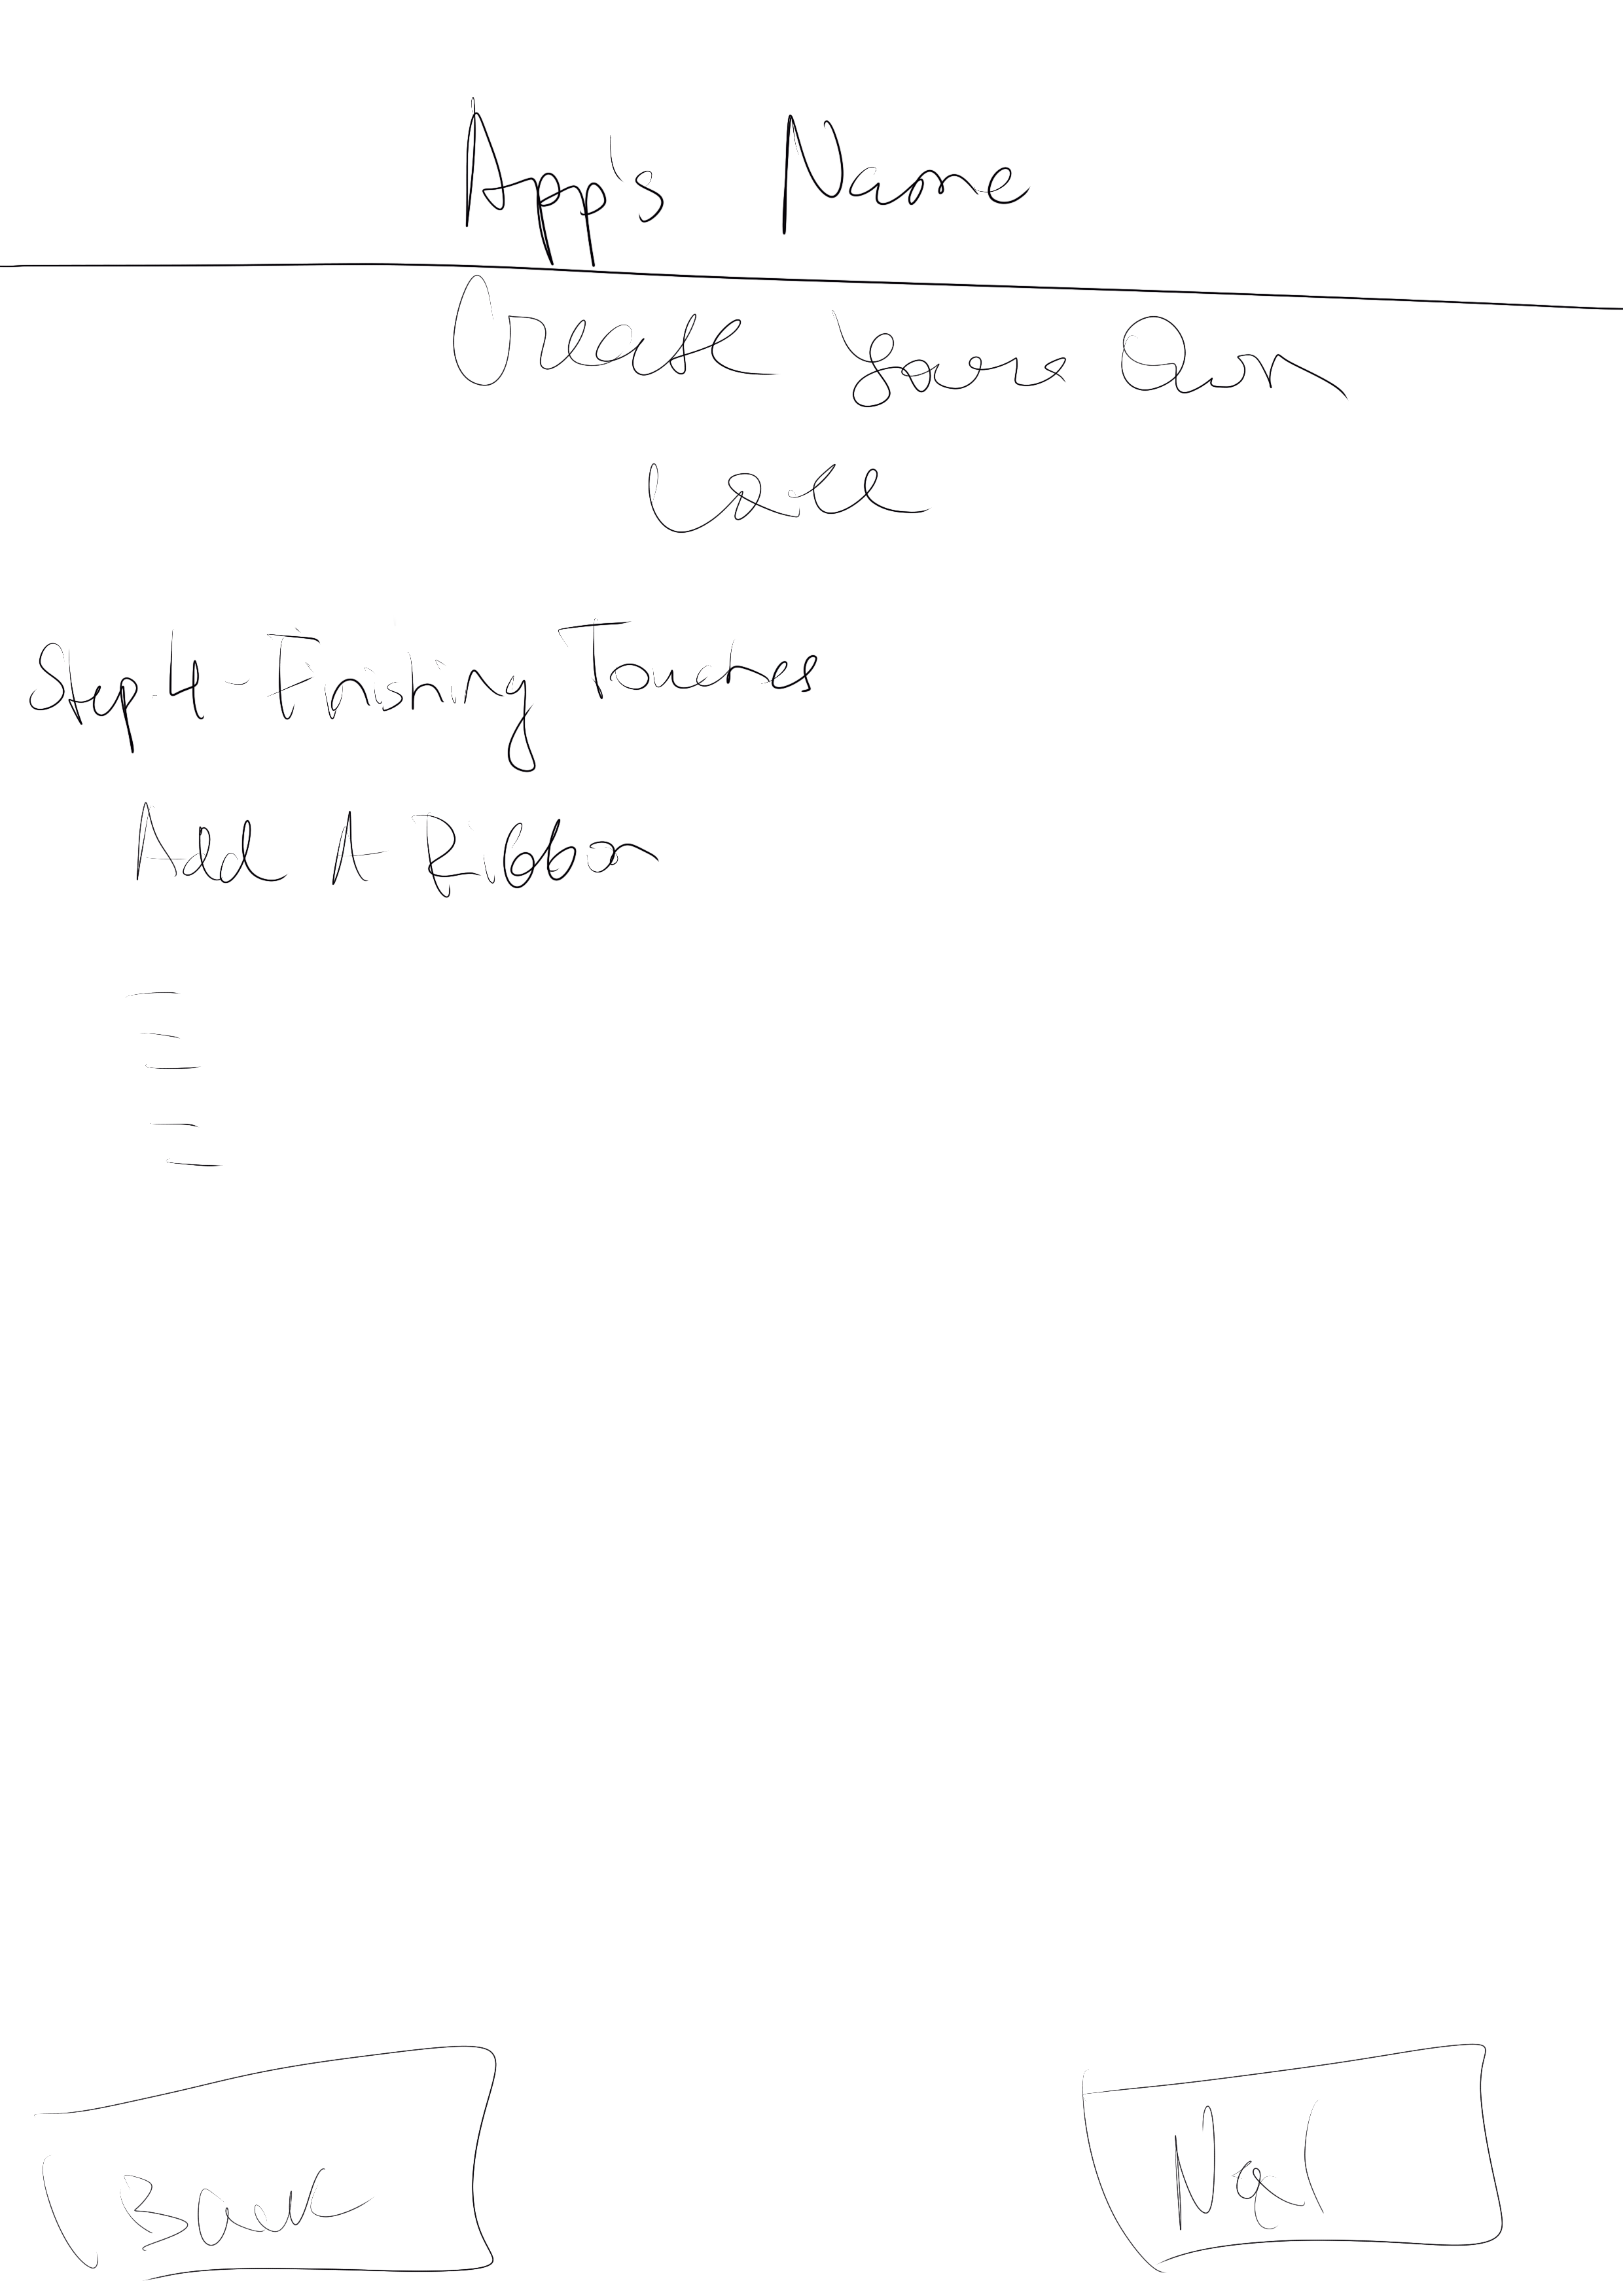 App's Name
Create Your Own
Cake
Step 4 - Finishing Touches
Add A Ribbon
Back
Next